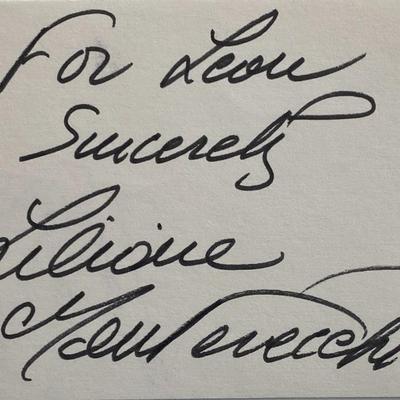 For Leon
Sincerely
Liliane
Montevecchi